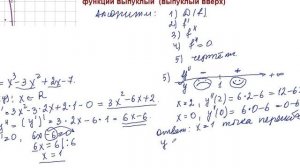 функции выпуклый (выпуклый вверх)
Алгоритм: 1) D(f)
2) f'
3) f''
4) f''=0
5) чертёж
= x³-3x²+2x-7.
x∈R
= 3x²-3·2x+2·1-0 = 3x²-6x+2
y''=(y')'= 3·2x-6·1 = 6x-6.
=0, 6x-6=0
6x=6 |:6
x=1
5) y'' - +
y 1
x=2, y''(2)=6·2-6=12-6
x=0, y''(0)=6·0-6=0-6
Ответ: x=1 точка
y